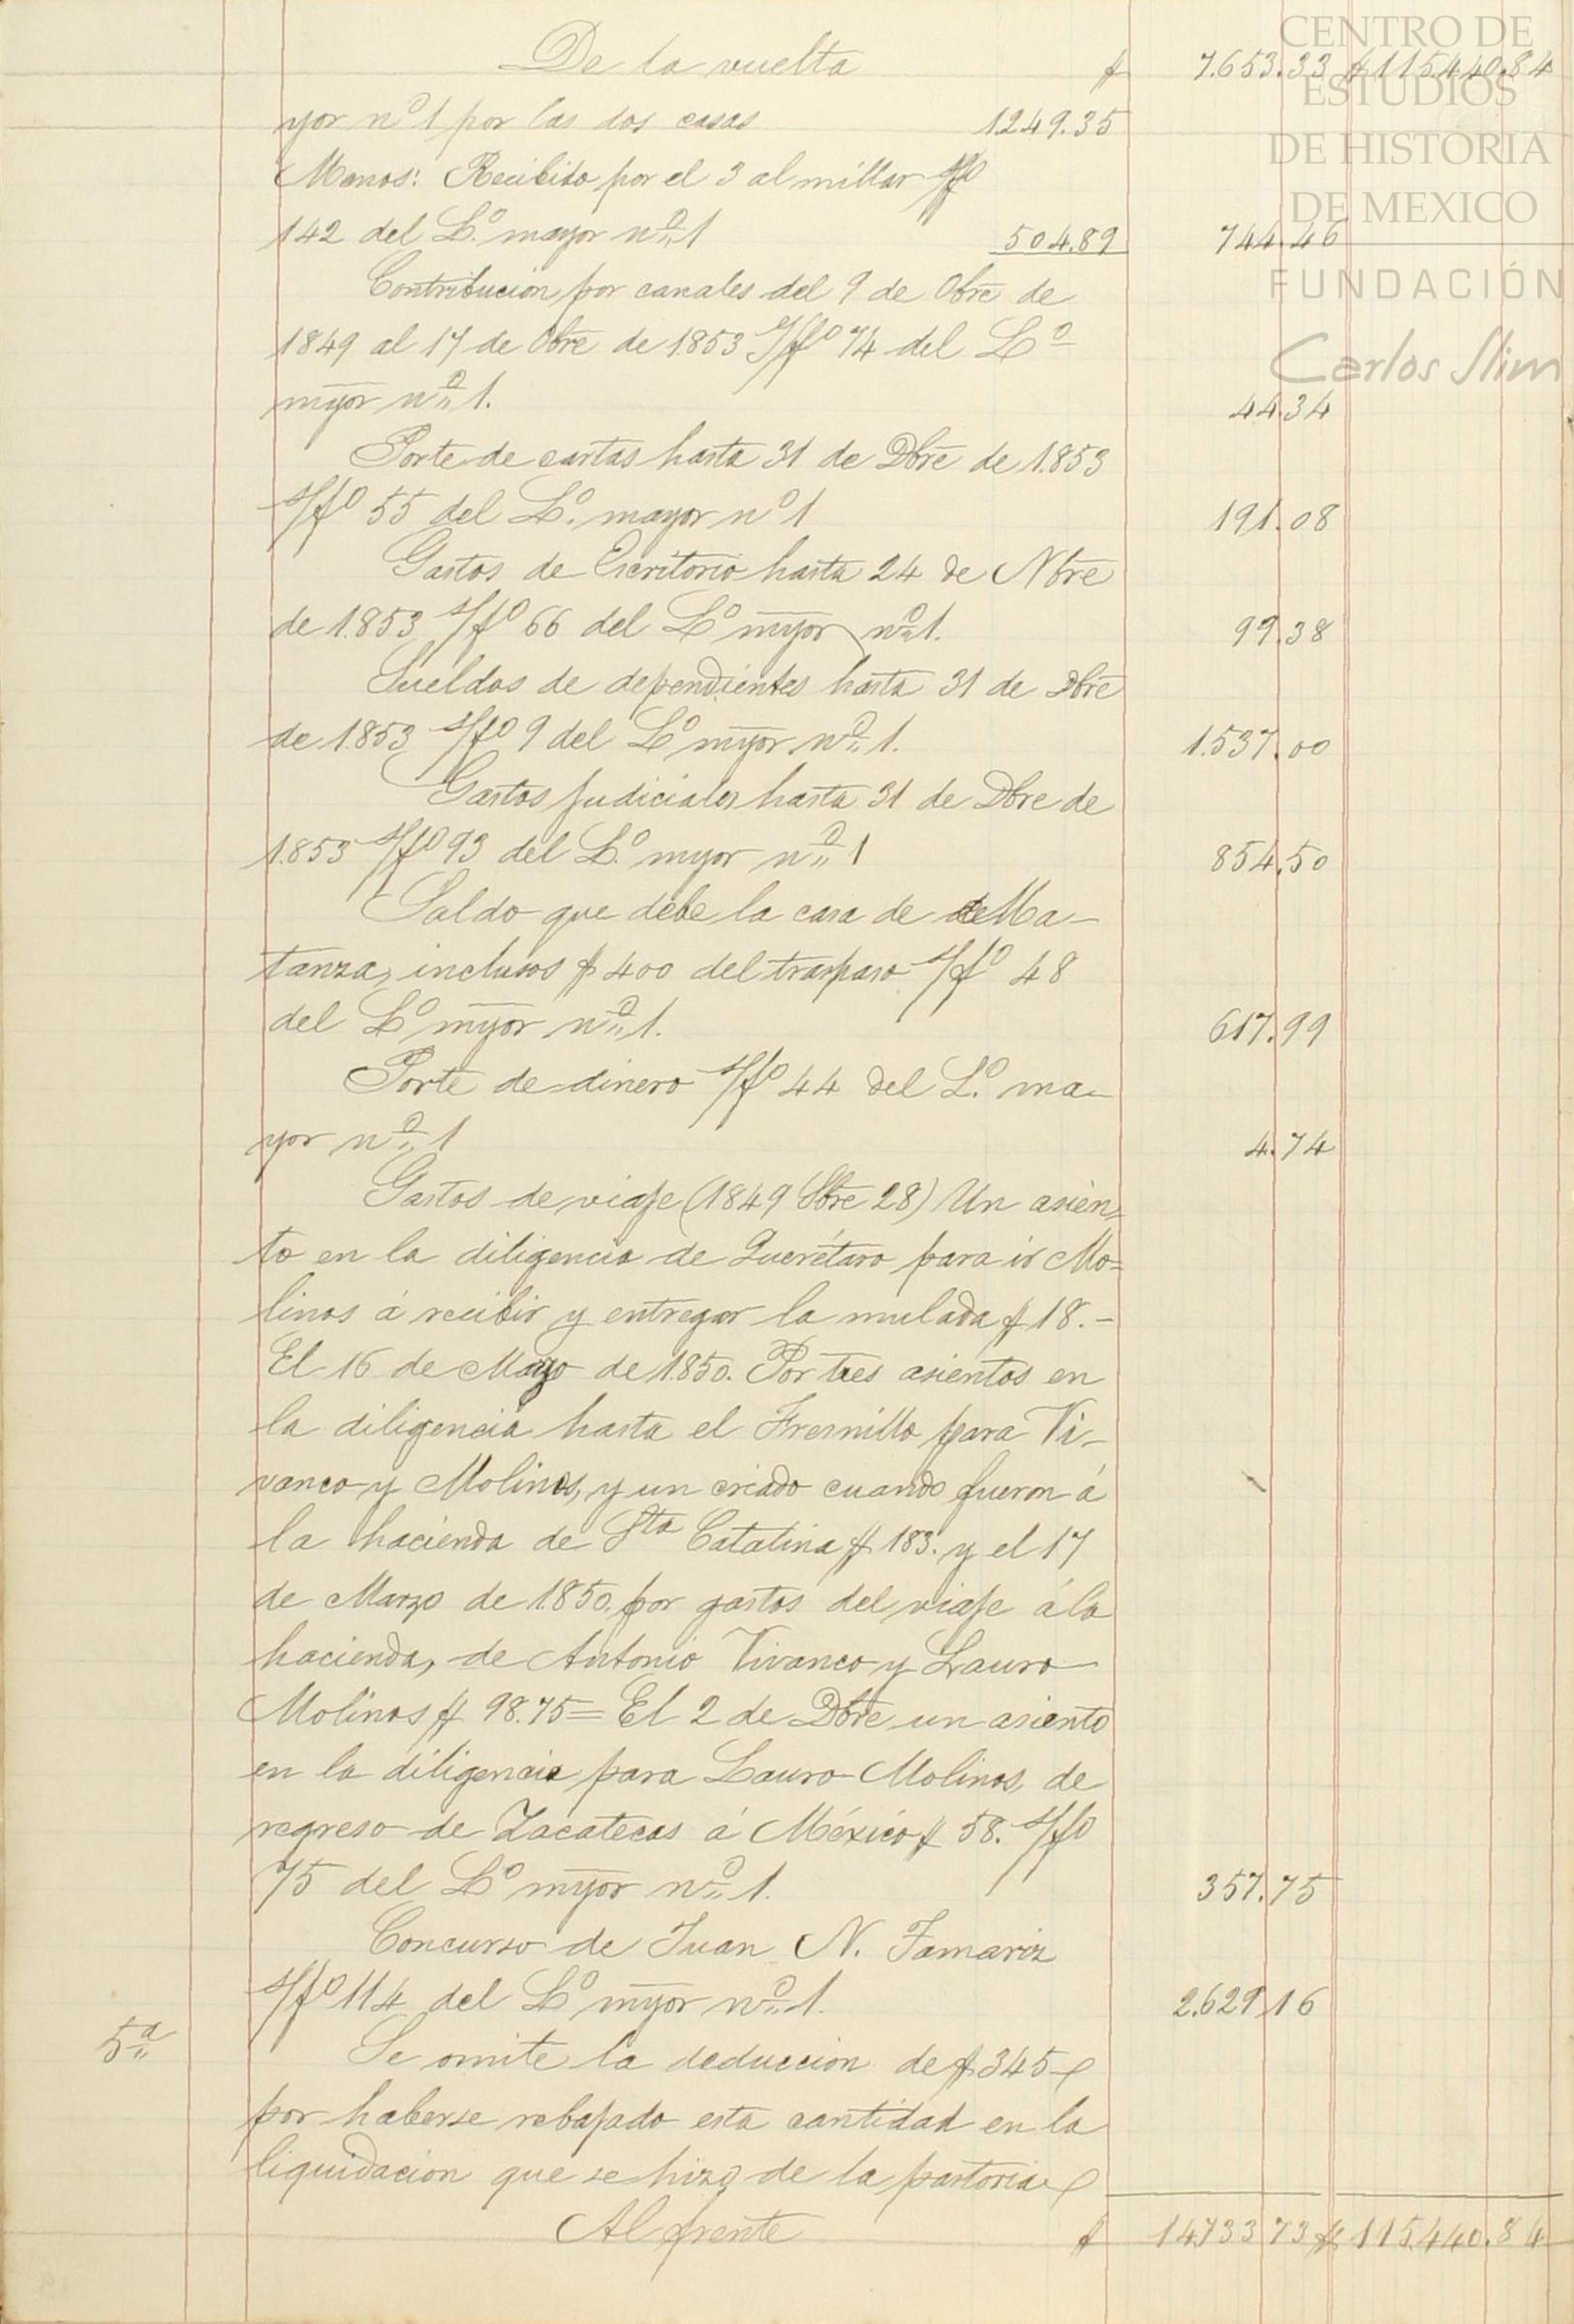 CENTRO DE
ESTUDIOS
DE HISTORIA
DE MEXICO
FUNDACIÓN
Carlos Slim
De la vuelta $ 7.653.33 $ 115.440.84
yor nº 1 por las dos casas 1249.35
Menos: Recibido por el 3 al millar s/fº
142 del Lº. mayor nº 1 504.89 744.46
Contribucion por canales del 9 de Obre de
1849 al 17 de Obre de 1853 s/fº 74 del Lº
myor nº 1. 44.34
Porte de cartas hasta 31 de Dbre de 1853
s/fº 55 del Lº. mayor nº 1 191.08
Gastos de Escritorio hasta 24 de Nbre
de 1.853 s/fº 66 del Lº myor nº 1. 99.38
Sueldos de dependientes hasta 31 de Dbre
de 1.853 s/fº 9 del Lº myor nº 1. 1.537.00
Gastos judiciales hasta 31 de Dbre de
1.853 s/fº 93 del Lº. myor nº 1 854.50
Saldo que debe la casa de de Ma-
tanza, inclusos $ 400 del traspaso s/fº 48
del Lº myor nº 1. 617.99
Porte de dinero s/fº 44 del Lº. ma-
yor nº 1 4.74
Gastos de viaje (1849 Sbre 28) Un asien-
to en la diligencia de Querétaro para ir Mo-
linos á recibir y entregar la mulada $ 18.-
El 16 de Mayo de 1.850. Por tres asientos en
la diligencia hasta el Fresnillo para Vi-
vanco y Molinos, y un criado cuando fueron á
la hacienda de Sta Catalina $ 183. y el 17
de Marzo de 1.850. por gastos del viaje á la
hacienda, de Antonio Vivanco y Lauro
Molinos $ 98.75= El 2 de Dbre un asiento
en la diligencia para Lauro Molinos, de
regreso de Zacatecas á México $ 58. s/fº
75 del Lº myor nº 1. 357.75
Concurso de Juan N. Tamariz
s/fº 114 del Lº myor nº 1. 2.629.16
5ª Se omite la deduccion de $ 345
por haberse rebajado esta cantidad en la
liquidacion que se hizo de la pastoria
Al frente $ 14.733 73 $ 115.440.84